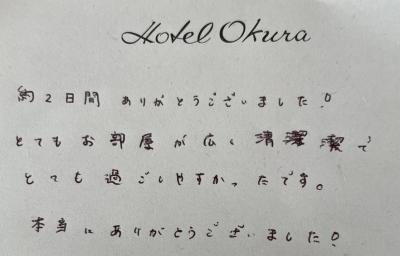 Hotel Okura
約2日間 ありがとうございました!
とてもお部屋が広く清潔で
とても過ごしやすかったです。
本当にありがとうございました!